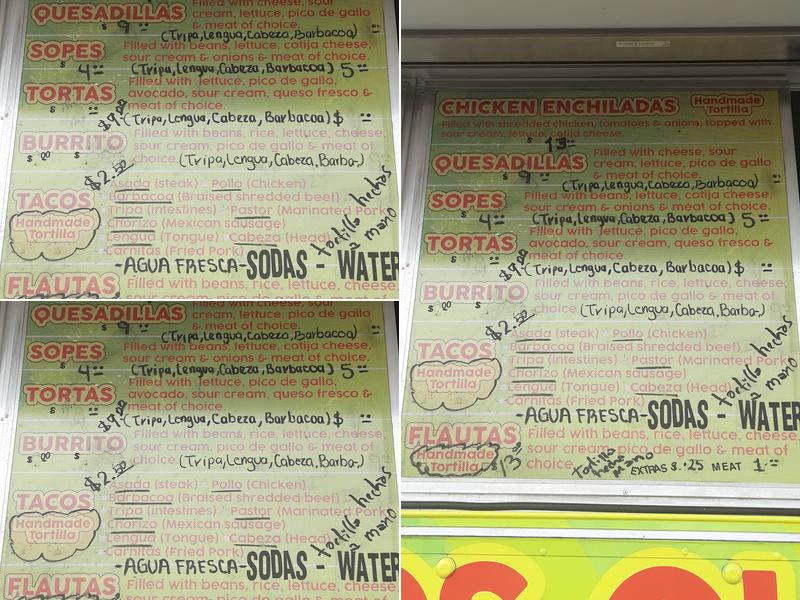 QUESADILLAS
Filled with cheese, sour
cream, lettuce, pico de gallo
& meat of choice.
$ 9 =
(Tripa, Lengua, Cabeza, Barbacoa)
SOPES
Filled with beans, lettuce, cotija cheese,
sour cream & onions & meat of choice.
$ 4 = (Tripa, Lengua, Cabeza, Barbacoa) 5 =
TORTAS
Filled with lettuce, pico de gallo,
avocado, sour cream, queso fresco &
meat of choice.
$9.00 (Tripa, Lengua, Cabeza, Barbacoa) $
BURRITO
Filled with beans, rice, lettuce, cheese,
sour cream, pico de gallo & meat of
choice (Tripa, Lengua, Cabeza, Barba-)
$2.50
TACOS
Handmade
Tortilla
Asada (steak) Pollo (Chicken)
Barbacoa (Braised shredded beef)
Tripa (intestines) Pastor (Marinated Pork
Chorizo (Mexican sausage)
Lengua (Tongue) Cabeza (Head)
Carnitas (Fried Pork)
tortilla hechas
a mano
-AGUA FRESCA-SODAS - WATER
FLAUTAS
Filled with beans, rice, lettuce, cheese,
QUESADILLAS
cream, lettuce, pico de gallo
& meat of choice.
$ 9 =
(Tripa, Lengua, Cabeza, Barbacoa)
SOPES
Filled with beans, lettuce, cotija cheese,
sour cream & onions & meat of choice.
$ 4 = (Tripa, Lengua, Cabeza, Barbacoa) 5 =
TORTAS
Filled with lettuce, pico de gallo,
avocado, sour cream, queso fresco &
meat of choice.
$9.00 (Tripa, Lengua, Cabeza, Barbacoa) $
BURRITO
Filled with beans, rice, lettuce, cheese,
sour cream, pico de gallo & meat of
choice (Tripa, Lengua, Cabeza, Barba-)
$2.50
TACOS
Handmade
Tortilla
Asada (steak) Pollo (Chicken)
Barbacoa (Braised shredded beef)
Tripa (intestines) Pastor (Marinated Pork
Chorizo (Mexican sausage)
Lengua (Tongue) Cabeza (Head)
Carnitas (Fried Pork)
tortilla hechas
a mano
-AGUA FRESCA-SODAS - WATER
FLAUTAS
Filled with beans, rice, lettuce, cheese,
CHICKEN ENCHILADAS
Handmade
Tortilla
Filled with shredded chicken, tomatoes & onions, topped with
sour cream, lettuce, cotija cheese.
$ 13 =
QUESADILLAS
Filled with cheese, sour
cream, lettuce, pico de gallo
& meat of choice.
$ 9 =
(Tripa, Lengua, Cabeza, Barbacoa)
SOPES
Filled with beans, lettuce, cotija cheese,
sour cream & onions & meat of choice.
$ 4 = (Tripa, Lengua, Cabeza, Barbacoa) 5 =
TORTAS
Filled with lettuce, pico de gallo,
avocado, sour cream, queso fresco &
meat of choice.
$9.00 (Tripa, Lengua, Cabeza, Barbacoa) $
BURRITO
Filled with beans, rice, lettuce, cheese,
sour cream, pico de gallo & meat of
choice (Tripa, Lengua, Cabeza, Barba-)
$2.50
TACOS
Handmade
Tortilla
Asada (steak) Pollo (Chicken)
Barbacoa (Braised shredded beef)
Tripa (intestines) Pastor (Marinated Pork
Chorizo (Mexican sausage)
Lengua (Tongue) Cabeza (Head)
Carnitas (Fried Pork)
tortilla hechas
a mano
-AGUA FRESCA-SODAS - WATER
FLAUTAS
Handmade
Tortilla
$13
Filled with beans, rice, lettuce, cheese,
sour cream, pico de gallo & meat of
choice
Tortilla
hecha
mano
EXTRAS $.25 MEAT 1 =